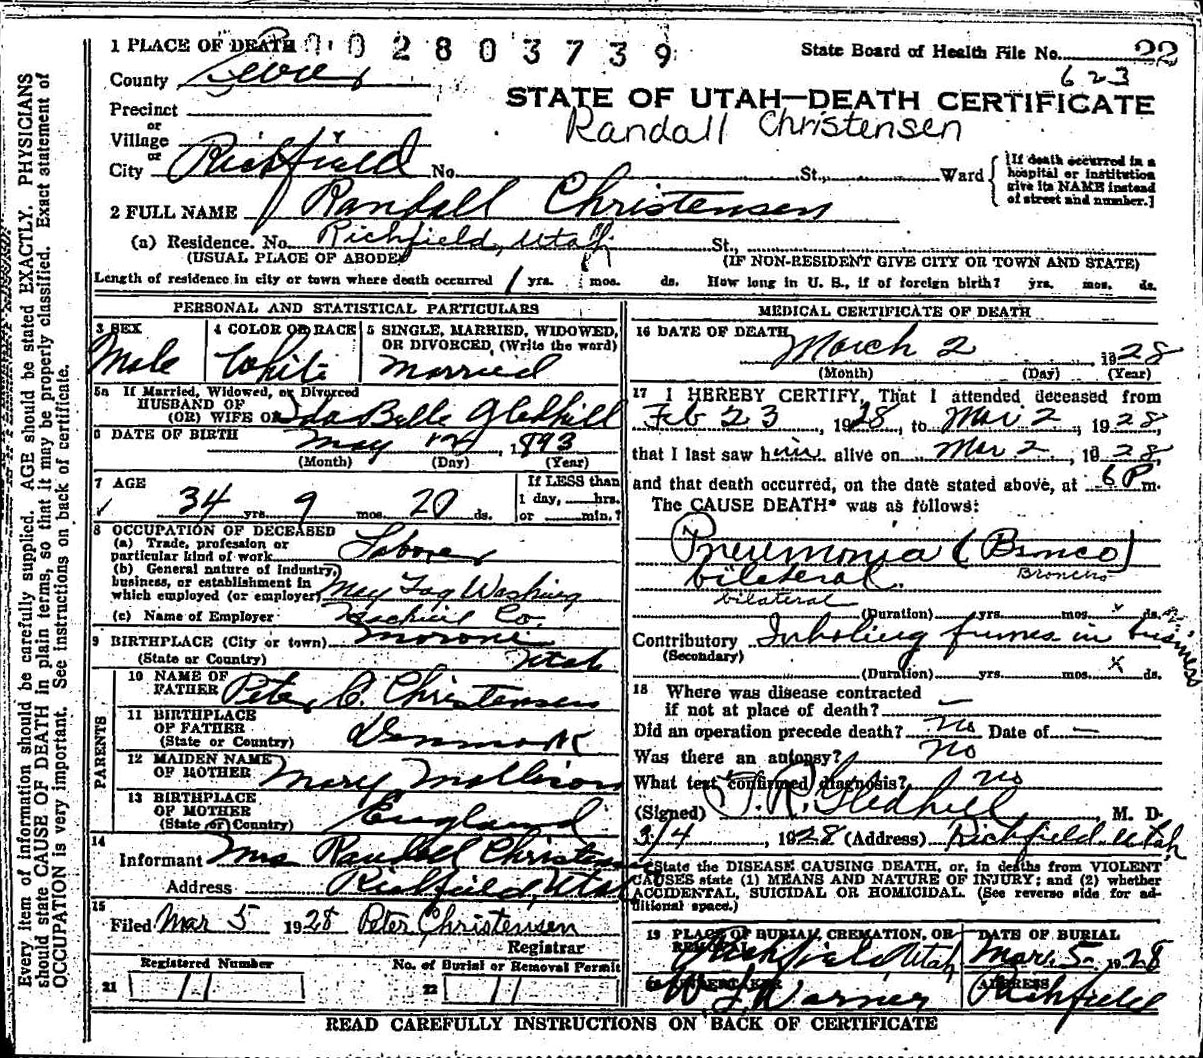 1 PLACE OF DEATH 002803739 State Board of Health File No. 22
County Sevier 623
STATE OF UTAH—DEATH CERTIFICATE
Precinct
or
Village
Randall Christensen
or
City Richfield No. St., Ward {[If death occurred in a hospital or institution give its NAME instead of street and number.]
2 FULL NAME Randall Christensen
(a) Residence. No. Richfield, Utah St.,
(USUAL PLACE OF ABODE) (IF NON-RESIDENT GIVE CITY OR TOWN AND STATE)
Length of residence in city or town where death occurred 1 yrs. mos. ds. How long in U. S., if of foreign birth? yrs. mos. ds.
PERSONAL AND STATISTICAL PARTICULARS
3 SEX 4 COLOR OR RACE 5 SINGLE, MARRIED, WIDOWED,
OR DIVORCED, (Write the word)
Male White Married
5a If Married, Widowed, or Divorced
HUSBAND OF
(OR) WIFE OF Ida Belle Gledhill
6 DATE OF BIRTH May 12, 1893
(Month) (Day) (Year)
7 AGE If LESS than
34 yrs. 9 mos. 20 ds. 1 day, hrs.
or min.?
8 OCCUPATION OF DECEASED
(a) Trade, profession or
particular kind of work Laborer
(b) General nature of Industry,
business, or establishment in
which employed (or employer) May Tag Washing
(c) Name of Employer Co
9 BIRTHPLACE (City or town) Moroni
(State or Country) Utah
PARENTS
10 NAME OF
FATHER Peter C. Christensen
11 BIRTHPLACE
OF FATHER
(State or Country) Denmark
12 MAIDEN NAME
OF MOTHER Mary Mallison
13 BIRTHPLACE
OF MOTHER
(State or Country) England
14
Informant Mrs Randall Christensen
Address Richfield, Utah
15
Filed Mar 5 1928 Peter Christensen
Registrar
Registered Number No. of Burial or Removal Permit
21 22
MEDICAL CERTIFICATE OF DEATH
16 DATE OF DEATH March 2, 1928
(Month) (Day) (Year)
17 I HEREBY CERTIFY, That I attended deceased from
Feb 23, 1928, to Mar 2, 1928,
that I last saw him alive on Mar 2, 1928,
and that death occurred, on the date stated above, at 6 P m.
The CAUSE DEATH* was as follows:
Pneumonia (Bronco)
bilateral. Broncho
bilateral
(Duration) yrs. mos. ds.
Contributory Inhaling fumes in business
(Secondary)
(Duration) yrs. mos. x ds.
18 Where was disease contracted
if not at place of death? —
Did an operation precede death? no Date of —
Was there an autopsy? no
What test confirmed diagnosis? no
(Signed) T. R. Gledhill M. D.
3/4, 1928 (Address) Richfield Utah
*State the DISEASE CAUSING DEATH, or, in deaths from VIOLENT
CAUSES state (1) MEANS AND NATURE OF INJURY; and (2) whether
ACCIDENTAL, SUICIDAL OR HOMICIDAL. (See reverse side for ad-
ditional space.)
19 PLACE OF BURIAL, CREMATION, OR DATE OF BURIAL
REMOVAL
Richfield, Utah Mar. 5 1928
20 UNDERTAKER ADDRESS
W L Warner Richfield
READ CAREFULLY INSTRUCTIONS ON BACK OF CERTIFICATE
Every item of information should be carefully supplied. AGE should be stated EXACTLY. PHYSICIANS
should state CAUSE OF DEATH in plain terms, so that it may be properly classified. Exact statement of
OCCUPATION is very important. See instructions on back of certificate.